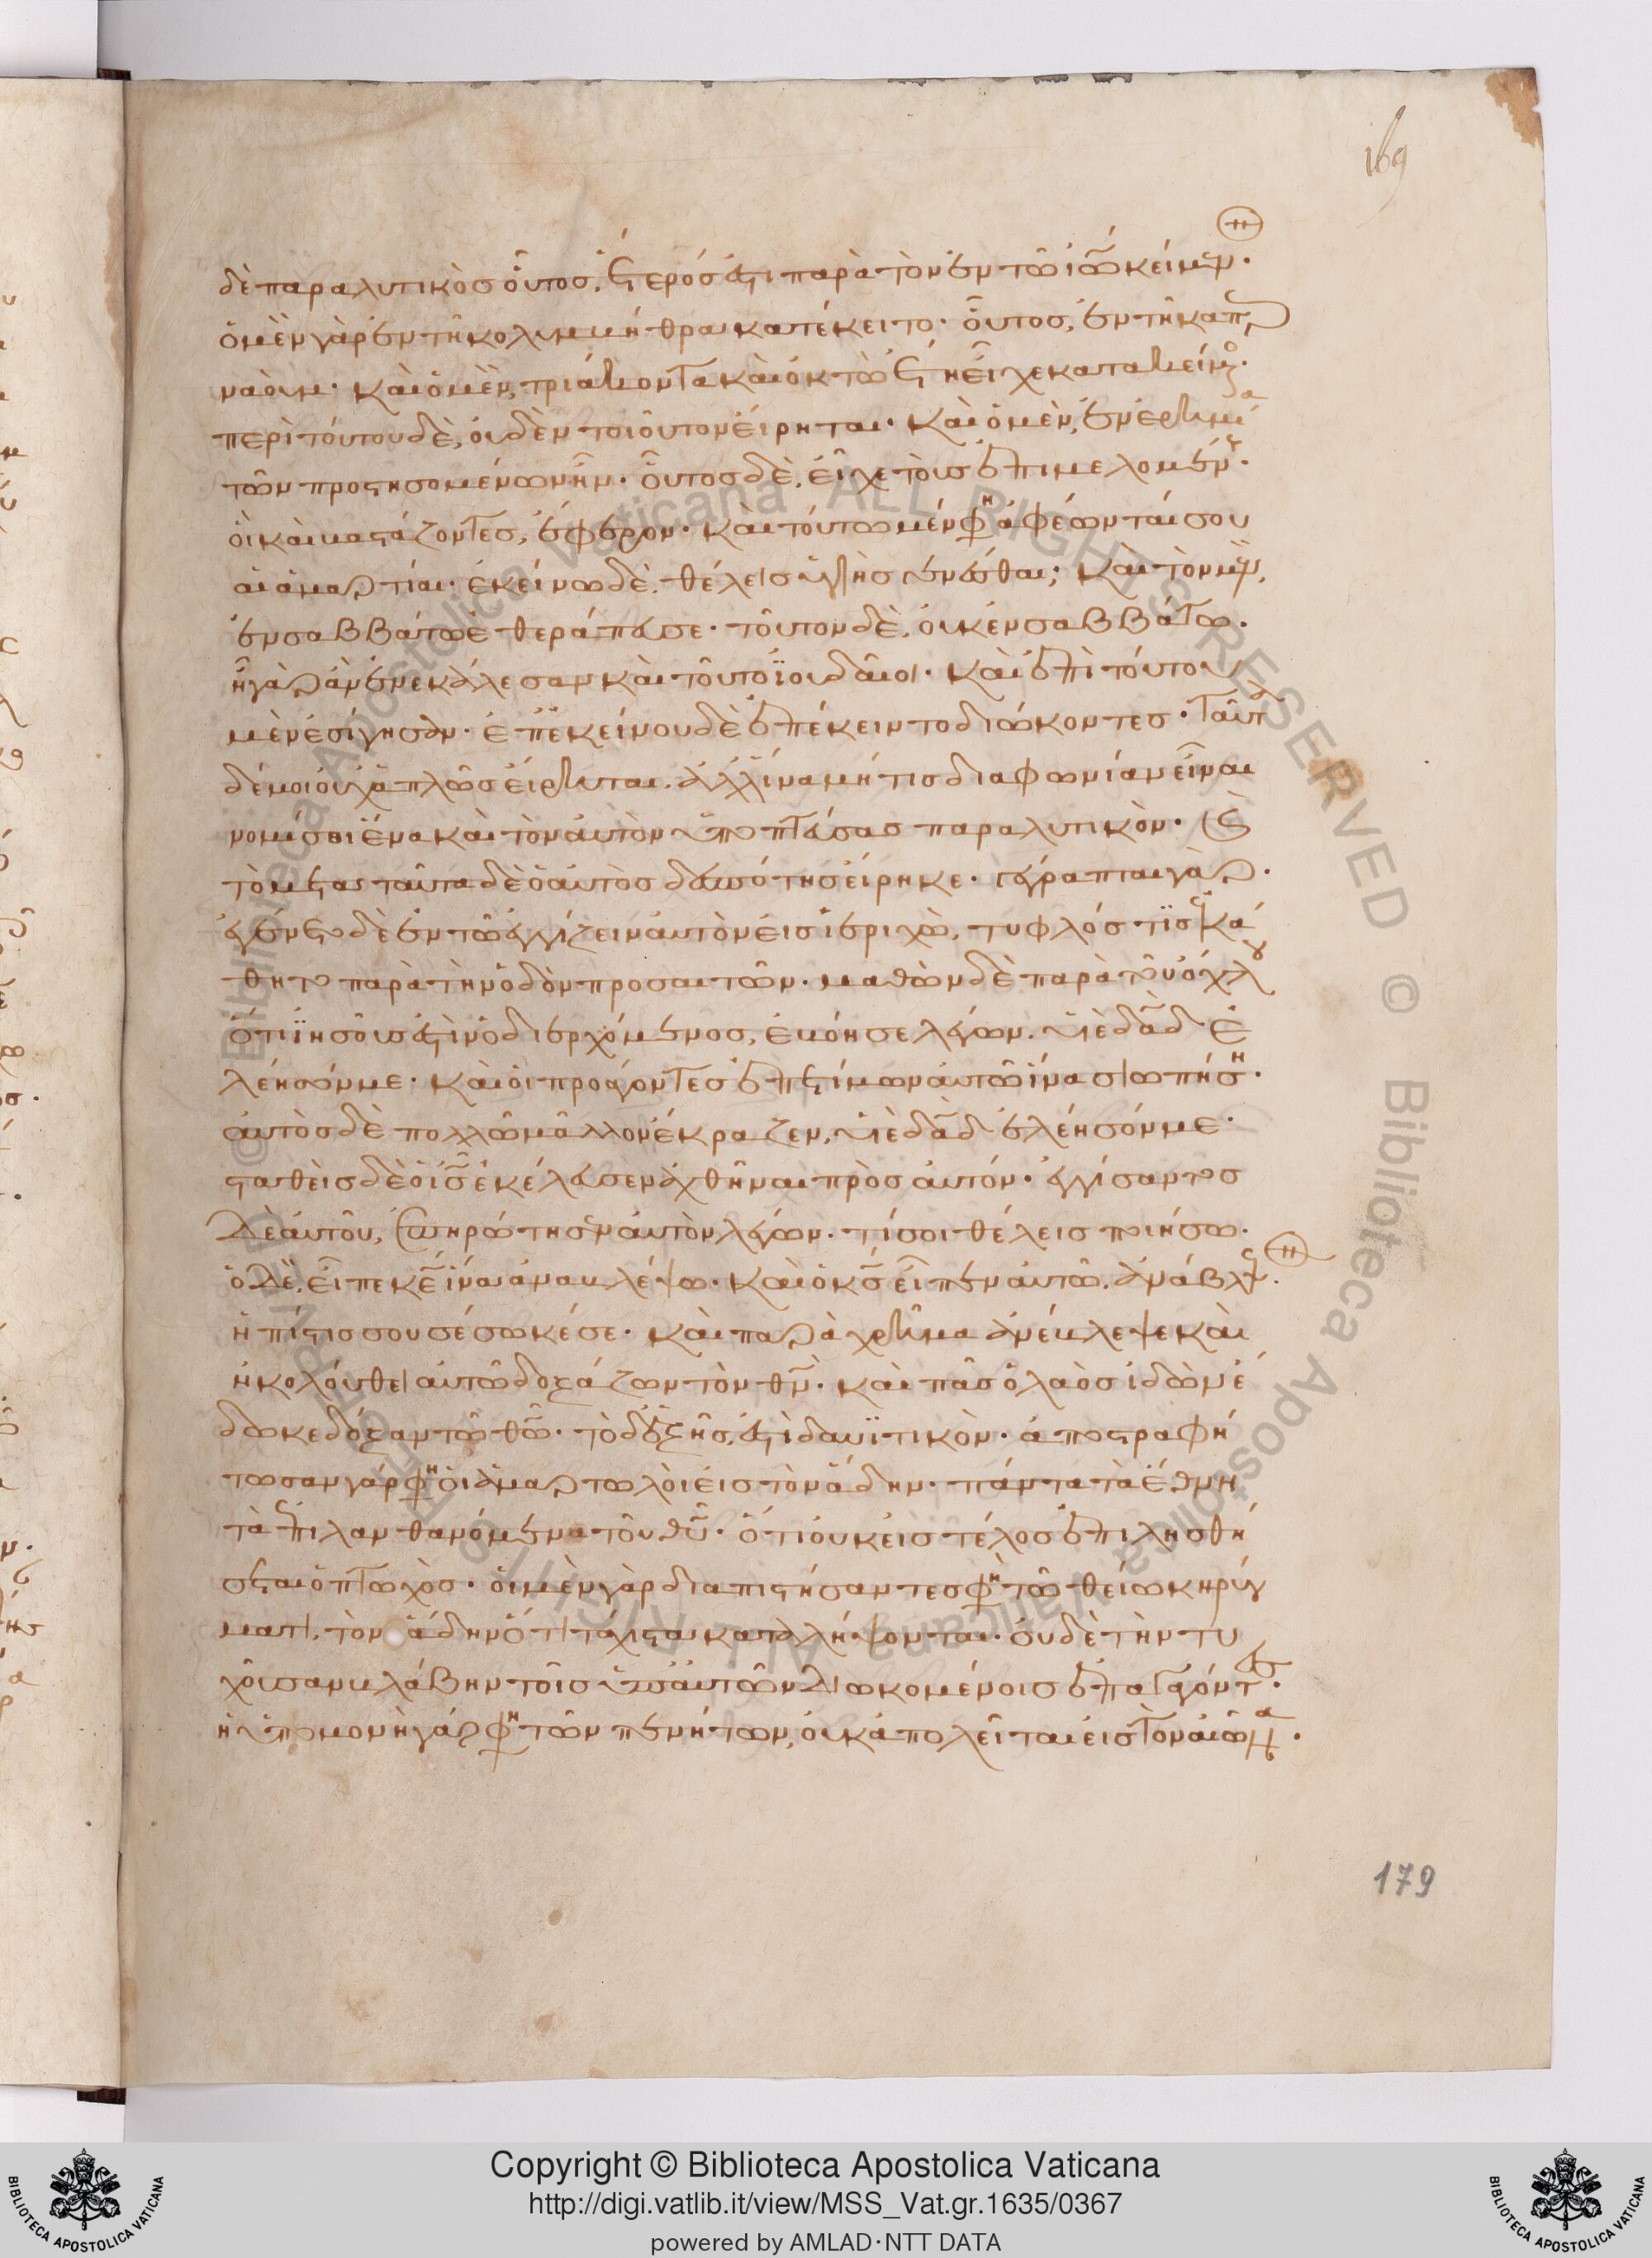 169
δὲ παραλυτικὸσ οὗτοσ, ἕτερόσ ἐστι παρὰ τὸν ἐν τῶ ἰω κείμεν.
ὁ μὲν γὰρ ἐν τῆ κολυμβήθρα κατέκειτο. οὗτοσ, ἐν τῆ καπερ
ναοὺμ. καὶ ὁ μὲν, τριάκοντα καὶ ὀκτὼ ἔτη εἶχε κατακείμενος.
περὶ τούτου δὲ, οὐδὲν τοιοῦτον εἴρηται. καὶ ὁ μὲν, ἐν ἐρημία
τῶν προστησομένων ἦν. οὗτοσ δὲ, εἶχε τοὺσ ἐπιμελομένους.
οἳ καὶ βαστάζοντεσ, ἔφερον. καὶ τούτω μέν φη ἀφέωνταί σου
αἱ ἁμαρτίαι. ἐκείνω δὲ. θέλεισ ὑγιὴσ γενέσθαι; καὶ τὸν μὲν,
ἐν σαββάτω ἐθεράπευσε. τοῦτον δὲ, οὐκ ἐν σαββάτω.
ἦ γὰρ ἂν ἐνεκάλεσαν καὶ τοῦτο ϊουδαῖοι. καὶ ἐπὶ τούτου
μὲν ἐσίγησαν. ἐπ' ἐκείνου δὲ ἐπέκειντο διώκοντεσ. ταῦτα
δέ μοι οὐχ ἁπλῶσ εἴρηται. ἀλλ' ἵνα μή τισ διαφωνίαν εἶναι
νομίσοι ἕνα καὶ τὸν αὐτὸν ὑποπτεύσασ παραλυτικὸν.
ταῦτα δὲ ὁ αὐτὸσ δεσπότησ εἴρηκε. γέγραπται γὰρ.
ἐγένετο δὲ ἐν τῶ ἐγγίζειν αὐτὸν εἰσ ἱεριχὼ, τυφλόσ τισ ἐκά
θητο παρὰ τὴν ὁδὸν προσαιτῶν. μαθὼν δὲ παρὰ τοῦ ὄχλου
ὅτι ϊησοῦσ ἐστὶν ὁ διερχόμενοσ, ἐβόησε λέγων. υἱὲ δαδ ἐ
λέησόν με. καὶ οἱ προάγοντεσ ἐπετίμων αὐτῶ ἵνα σιωπήση.
αὐτὸσ δὲ πολλῶ μᾶλλον ἔκραζεν, υἱὲ δαδ ἐλέησόν με.
σταθεὶσ δὲ ὁ ισ ἐκέλευσεν ἀχθῆναι πρὸσ αὐτόν. ἐγγίσαντοσ
δὲ αὐτοῦ, ἐπηρώτησεν αὐτὸν λέγων. τί σοι θέλεισ ποιήσω.
ὁ δὲ, εἶπε κε ἵνα ἀναβλέψω. καὶ ὁ κσ εἶπεν αὐτῶ. ἀνάβλεψον.
ἡ πίστισ σου σέσωκέ σε. καὶ παραχρῆμα ἀνέβλεψε καὶ
ἠκολούθει αὐτῶ δοξάζων τὸν θν. καὶ πᾶσ ὁ λαὸσ ἰδὼν ἔ
δωκε δόξαν τῶ θω. τὸ δ' ἑξῆσ, ἐστὶ δαυϊτικὸν. ἀποστραφή
τωσαν γάρ φη οἱ ἁμαρτωλοὶ εἰσ τὸν ἅδην. πάντα τὰ ἔθνη
τὰ ἐπιλανθανόμενα τοῦ θυ. ὅτι οὐκ εἰσ τέλοσ ἐπιλησθή
σεται ὁ πτωχὸσ. οἱ μὲν γὰρ διαπιστήσαντεσ φη τῶ θείω κηρύγ
ματι, τὸν ἅδην ὅτι τάχιστα καταλήψονται. οὐδὲ τὴν τυ
χοῦσαν βλάβην τοῖσ ὑπ' αὐτῶν διωκομένοισ ἐπαγαγόντες.
ἡ ὑπομονὴ γάρ φη τῶν πενήτων, οὐκ ἀπολεῖται εἰσ τὸν αἰῶνα.
179
Copyright © Biblioteca Apostolica Vaticana
http://digi.vatlib.it/view/MSS_Vat.gr.1635/0367
powered by AMLAD·NTT DATA